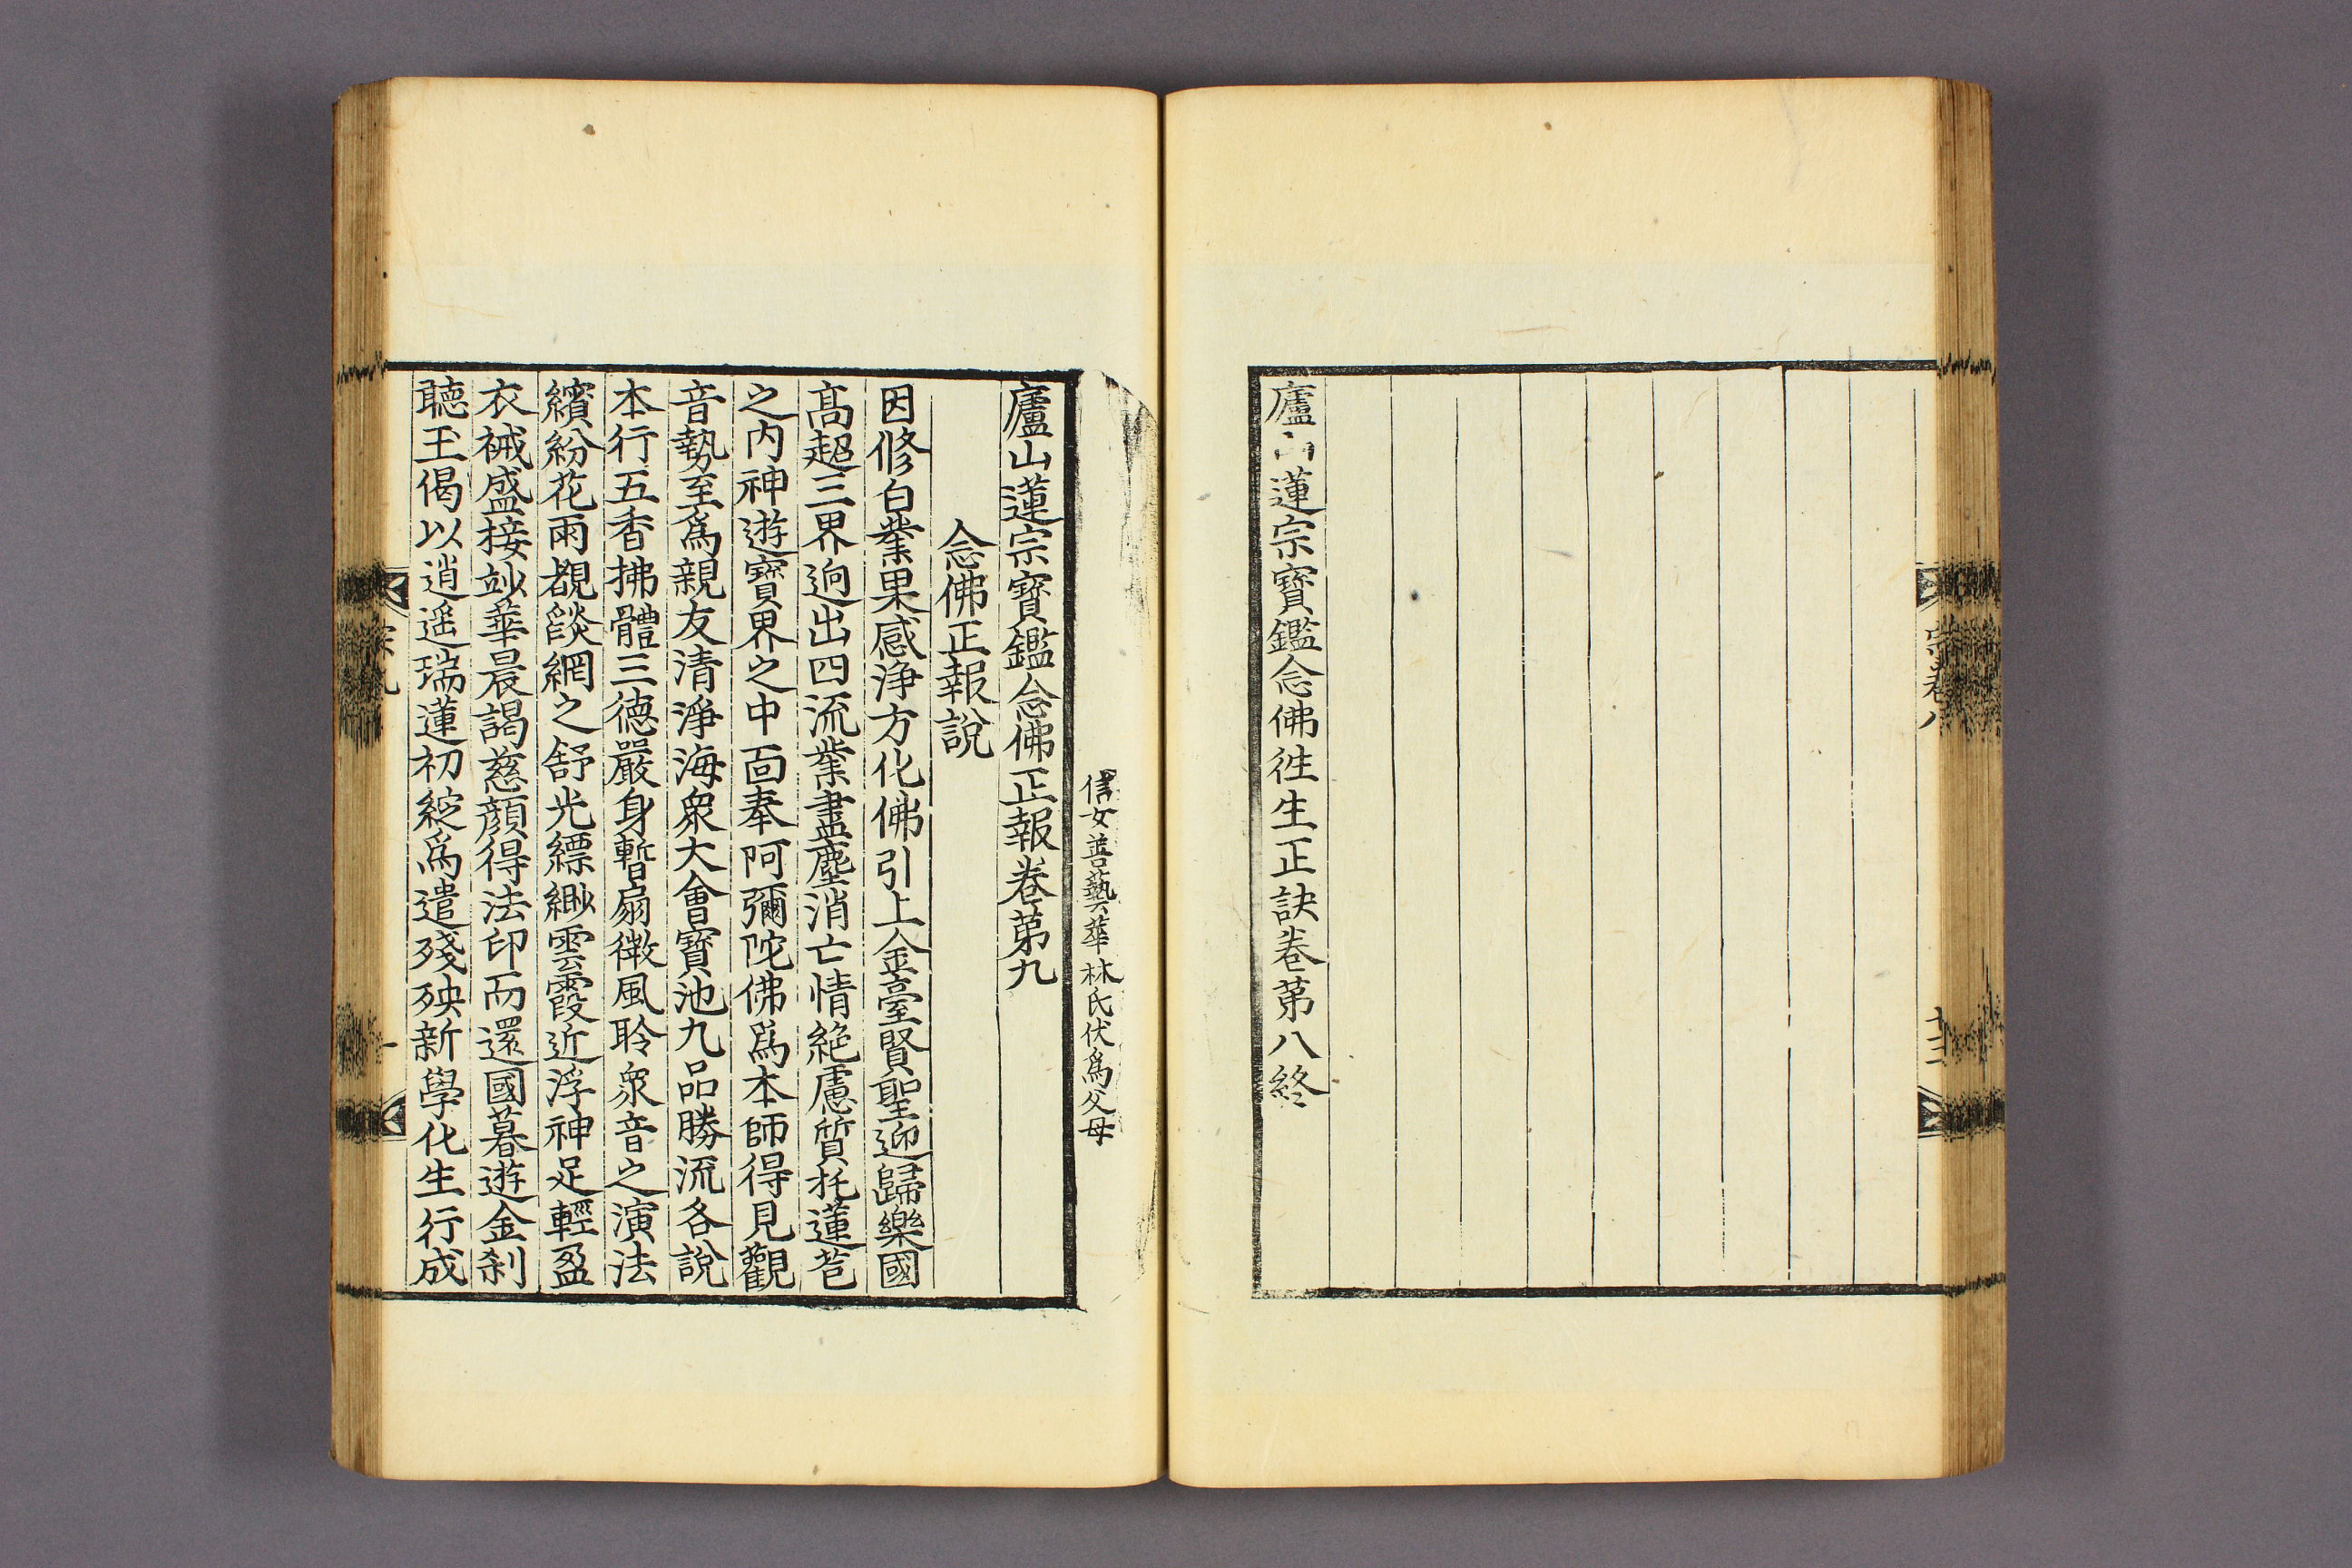 宗卷八
十三
廬山蓮宗寶鑑念佛徃生正訣卷第八終
信女善藝華林氏伏爲父母
廬山蓮宗寶鑑念佛正報卷第九
念佛正報說
因修白業果感淨方化佛引上金臺賢聖迎歸樂國
髙超三界逈出四流業盡塵消亡情絶慮質托蓮苞
之内神遊寶界之中面奉阿彌陀佛爲本師得見觀
音勢至爲親友清淨海衆大會寶池九品勝流各說
本行五香拂體三德嚴身暫扇微風聆衆音之演法
繽紛花雨覩燄網之舒光縹緲雲霞近浮神足輕盈
衣裓盛接玅華晨謁慈顔得法印而還國暮遊金刹
聽玉偈以逍遥瑞蓮初綻爲遣殘殃新學化生行成
宗九
一